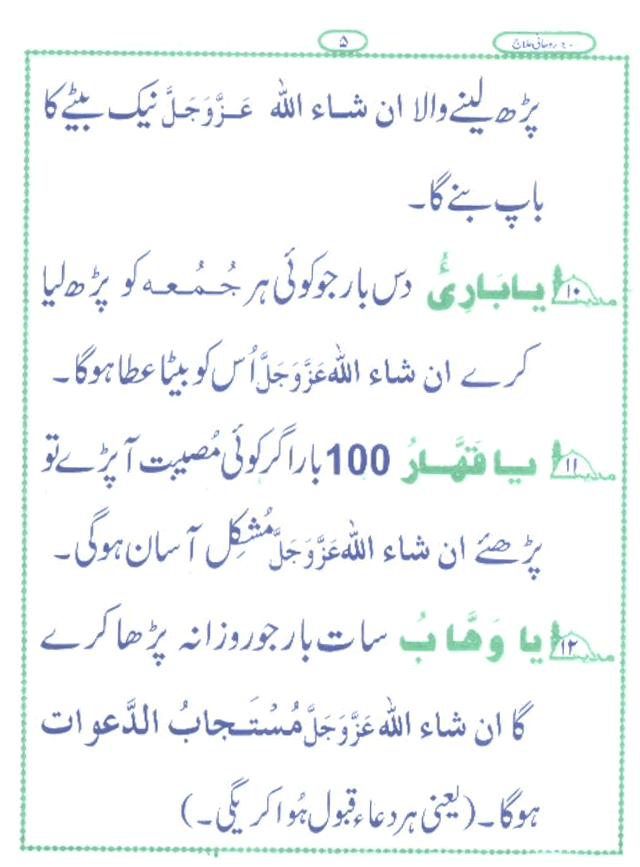 ۴۰ روحانی علاج
۵
پڑھ لینے والا ان شاء اللہ عَزَّوَجَلَّ نیک بیٹے کا
باپ بنے گا۔
مدینہ ۱۰ یَابَارِئُ دس بار جو کوئی ہر جُمُعہ کو پڑھ لیا
کرے ان شاء اللہ عَزَّوَجَلَّ اُس کو بیٹا عطا ہوگا۔
مدینہ ۱۱ یا قَهَّارُ 100 بار اگر کوئی مُصیبت آ پڑے تو
پڑھئے ان شاء اللہ عَزَّوَجَلَّ مُشکِل آسان ہوگی۔
مدینہ ۱۲ یا وَهَّابُ سات بار جو روزانہ پڑھا کرے
گا ان شاء اللہ عَزَّوَجَلَّ مُسْتَجابُ الدَّعوات
ہوگا۔ (یعنی ہر دعاء قبول ہُوا کریگی۔)